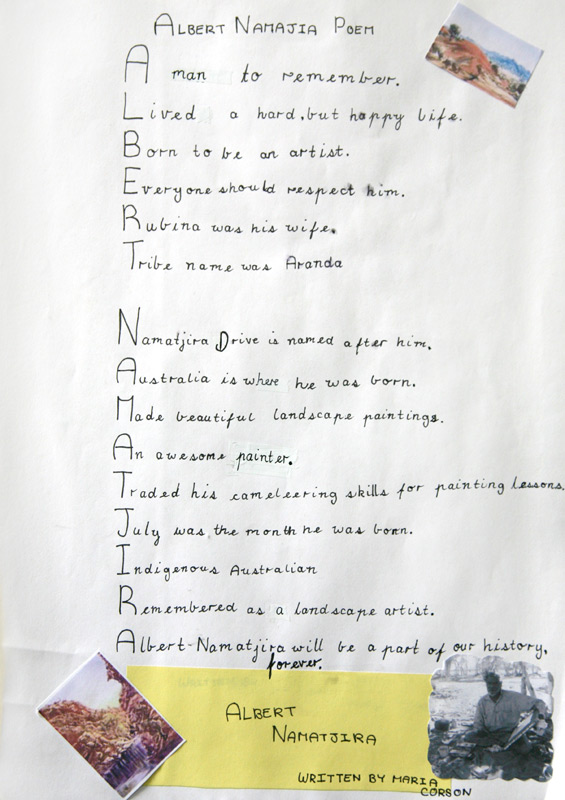 ALBERT NAMAJIA POEM
A man to remember.
Lived a hard, but happy life.
Born to be an artist.
Everyone should respect him.
Rubina was his wife.
Tribe name was Aranda
Namatjira Drive is named after him.
Australia is where he was born.
Made beautiful landscape paintings.
An awesome painter.
Traded his cameleering skills for painting lessons.
July was the month he was born.
Indigenous Australian
Remembered as a landscape artist.
Albert-Namatjira will be a part of our history,
forever.
ALBERT
NAMATJIRA
WRITTEN BY MARIA
CORSON